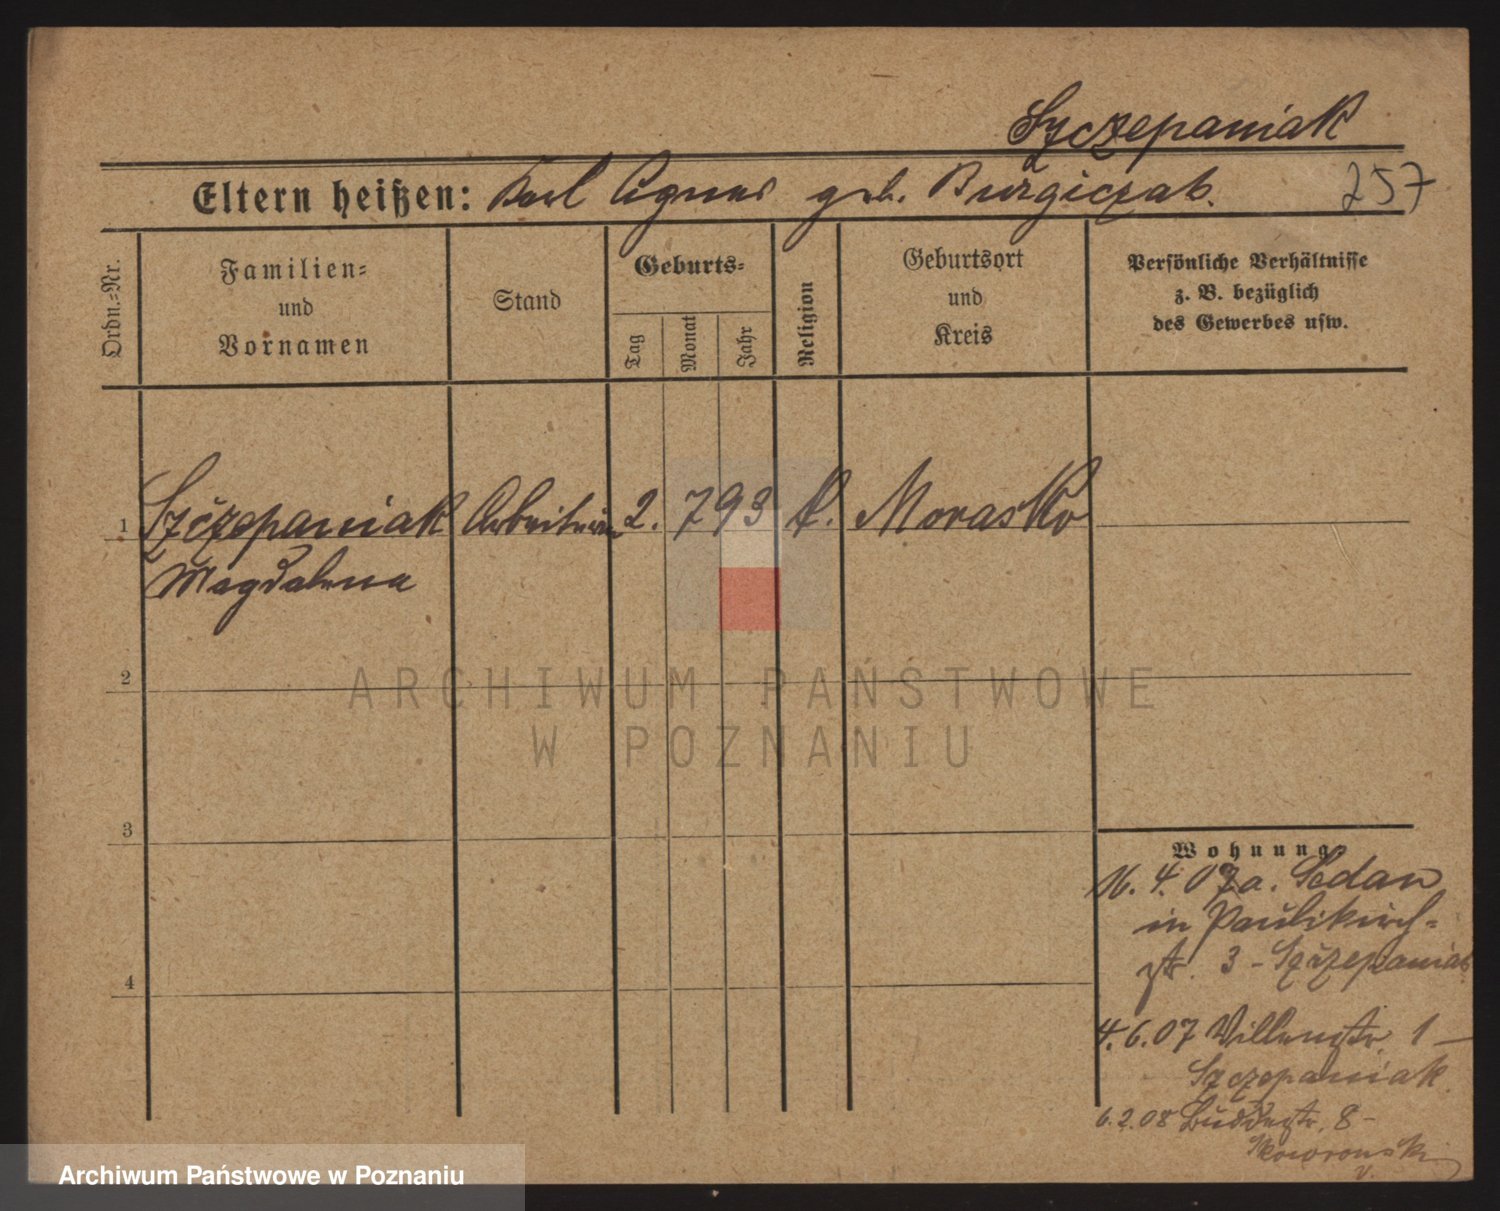 Szczepaniak
Eltern heißen: Karl Agnes geb. Burzgiczak. 257
Ordn.=Nr.
Familien=
und
Vornamen
Stand
Geburts=
Tag
Monat
Jahr
Religion
Geburtsort
und
Kreis
Persönliche Verhältnisse
z. B. bezüglich
des Gewerbes usw.
1 Szczepaniak Arbeiterin 2. 7 93 k. Morasko
Magdalena
2
ARCHIWUM PAŃSTWOWE
W POZNANIU
3
4
Wohnung
16. 4. 07 a. Sedan
in Paulikirch-
str. 3 - Szczepaniak
4. 6. 07 Villenstr. 1 –
Szczepaniak
6.2.08 Buddestr. 8 -
Skowronski
v.
Archiwum Państwowe w Poznaniu